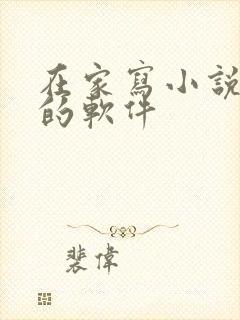 在家寫小說
的軟件
裴偉